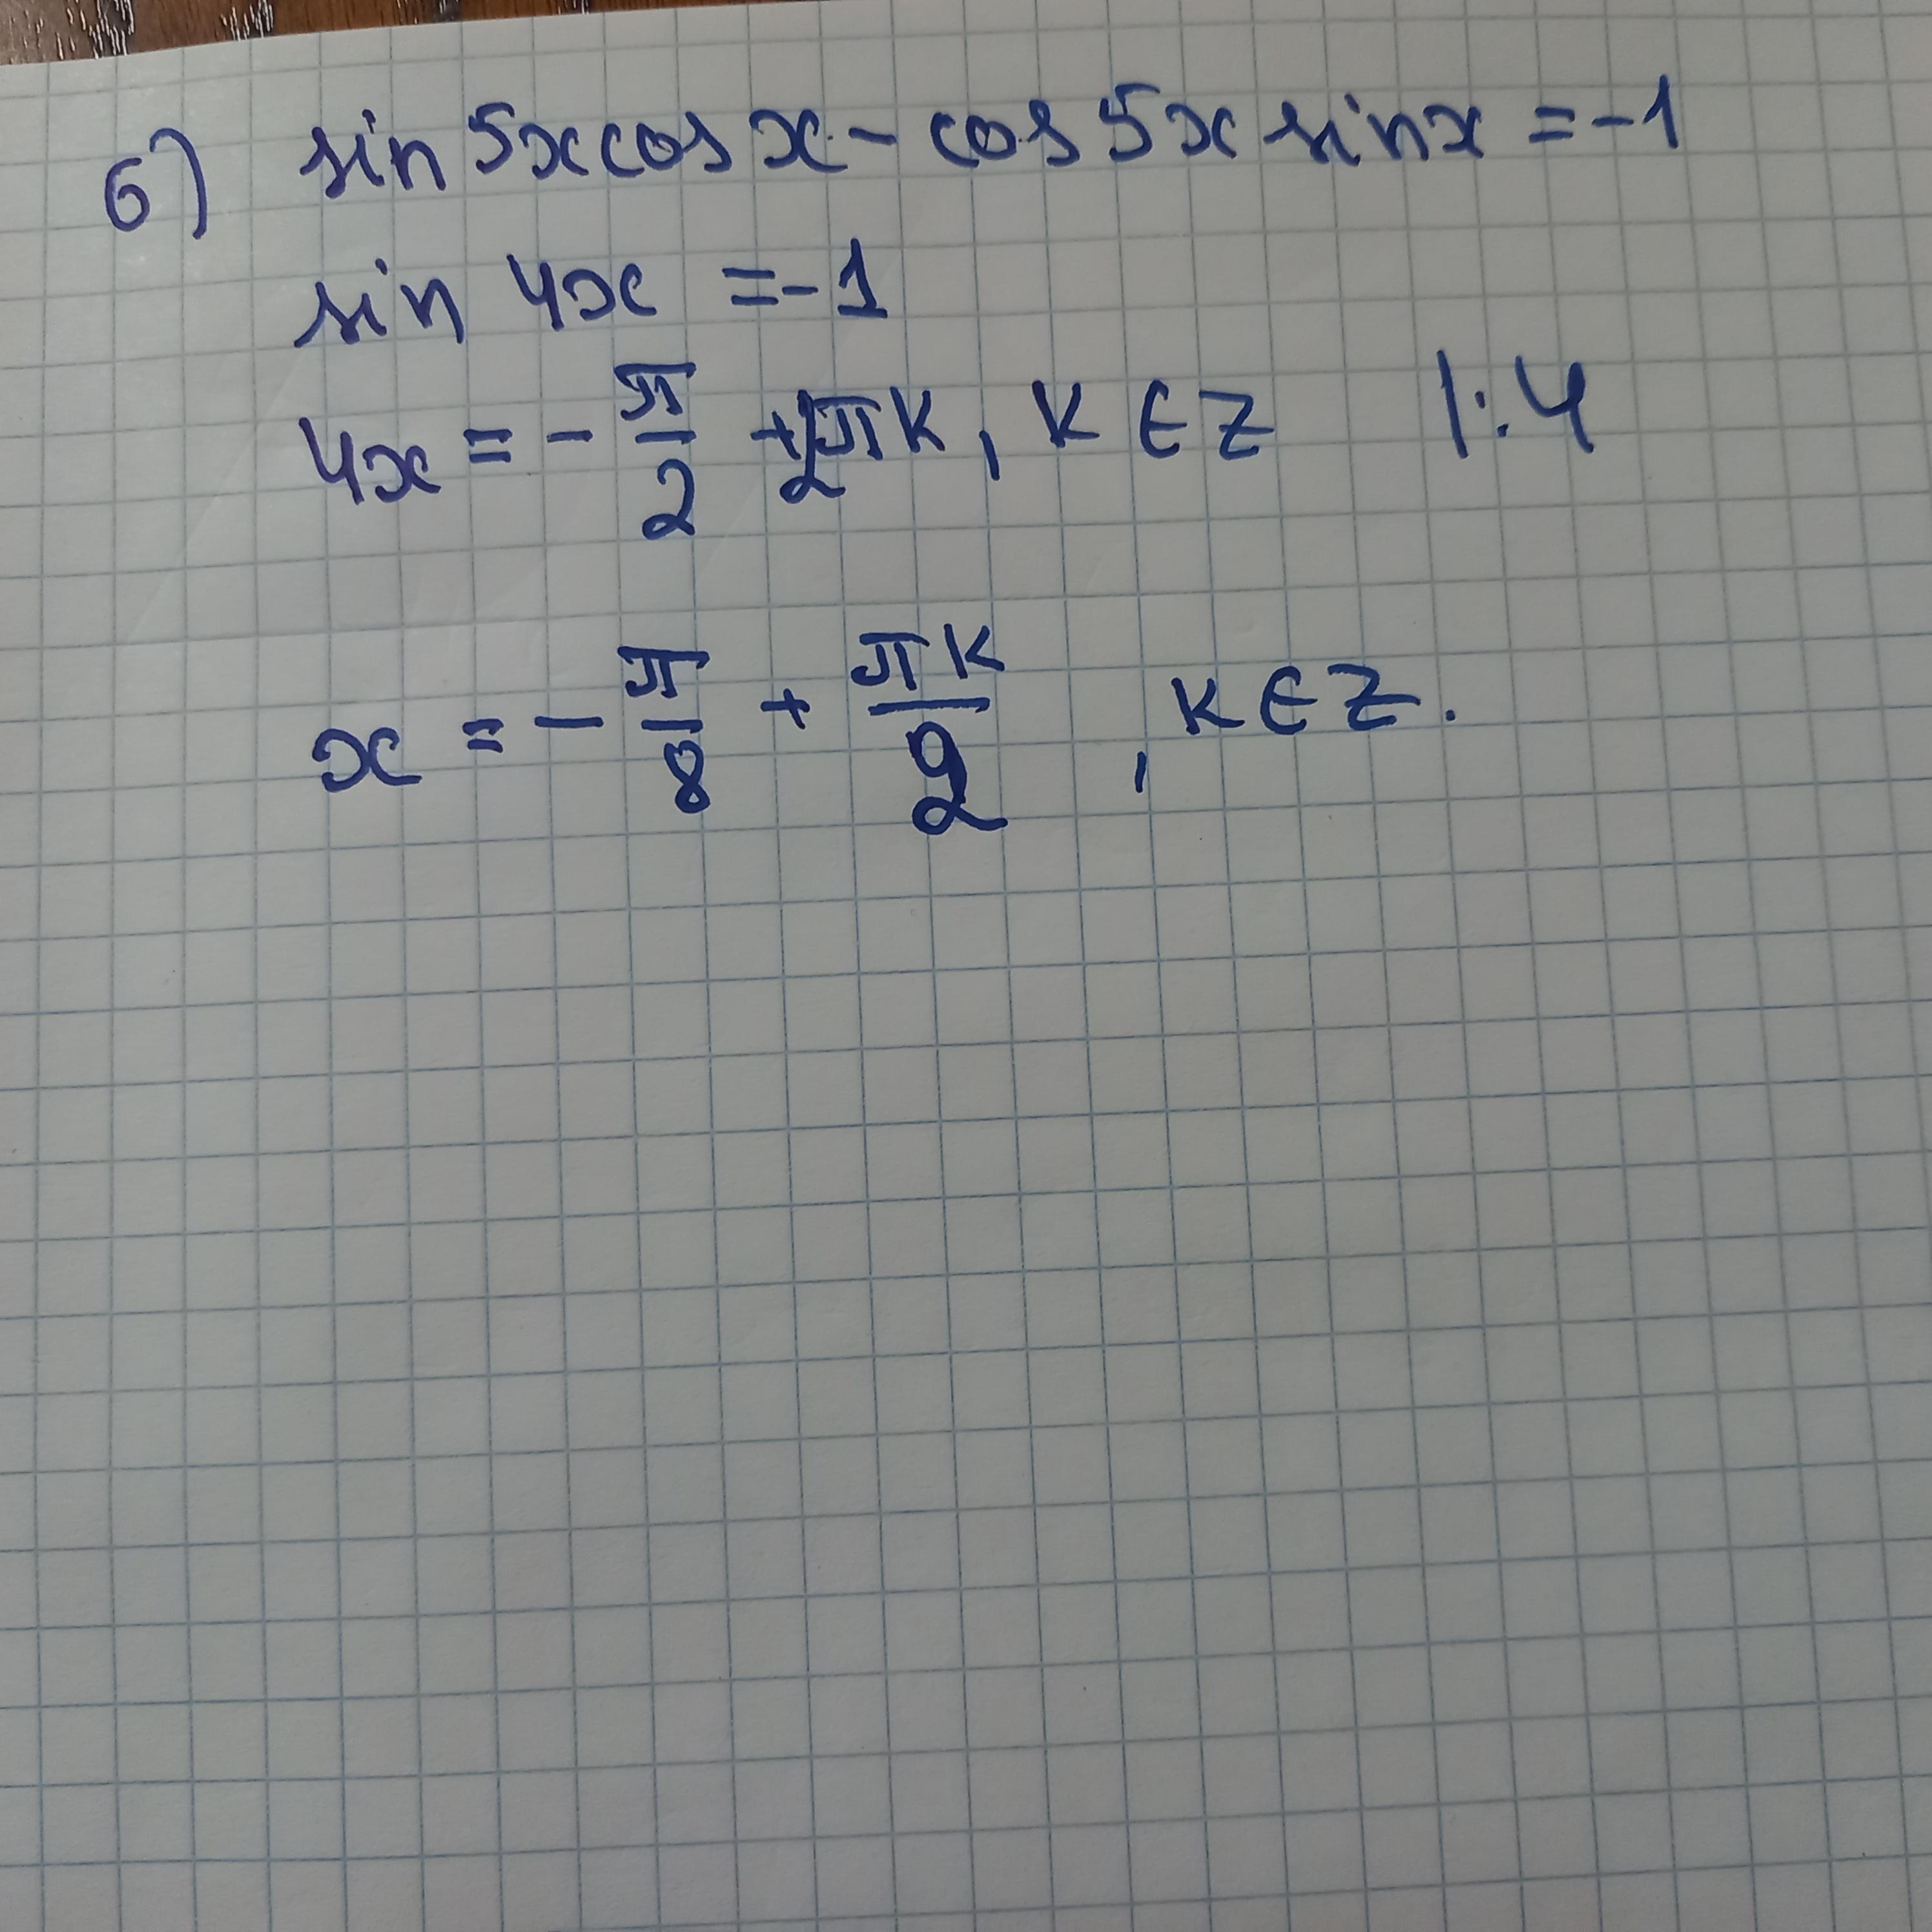 б) sin 5x cos x - cos 5x sin x = -1
sin 4x = -1
4x = - π/2 + 2πk, k ∈ Z |:4
x = - π/8 + πk/2, k ∈ Z.